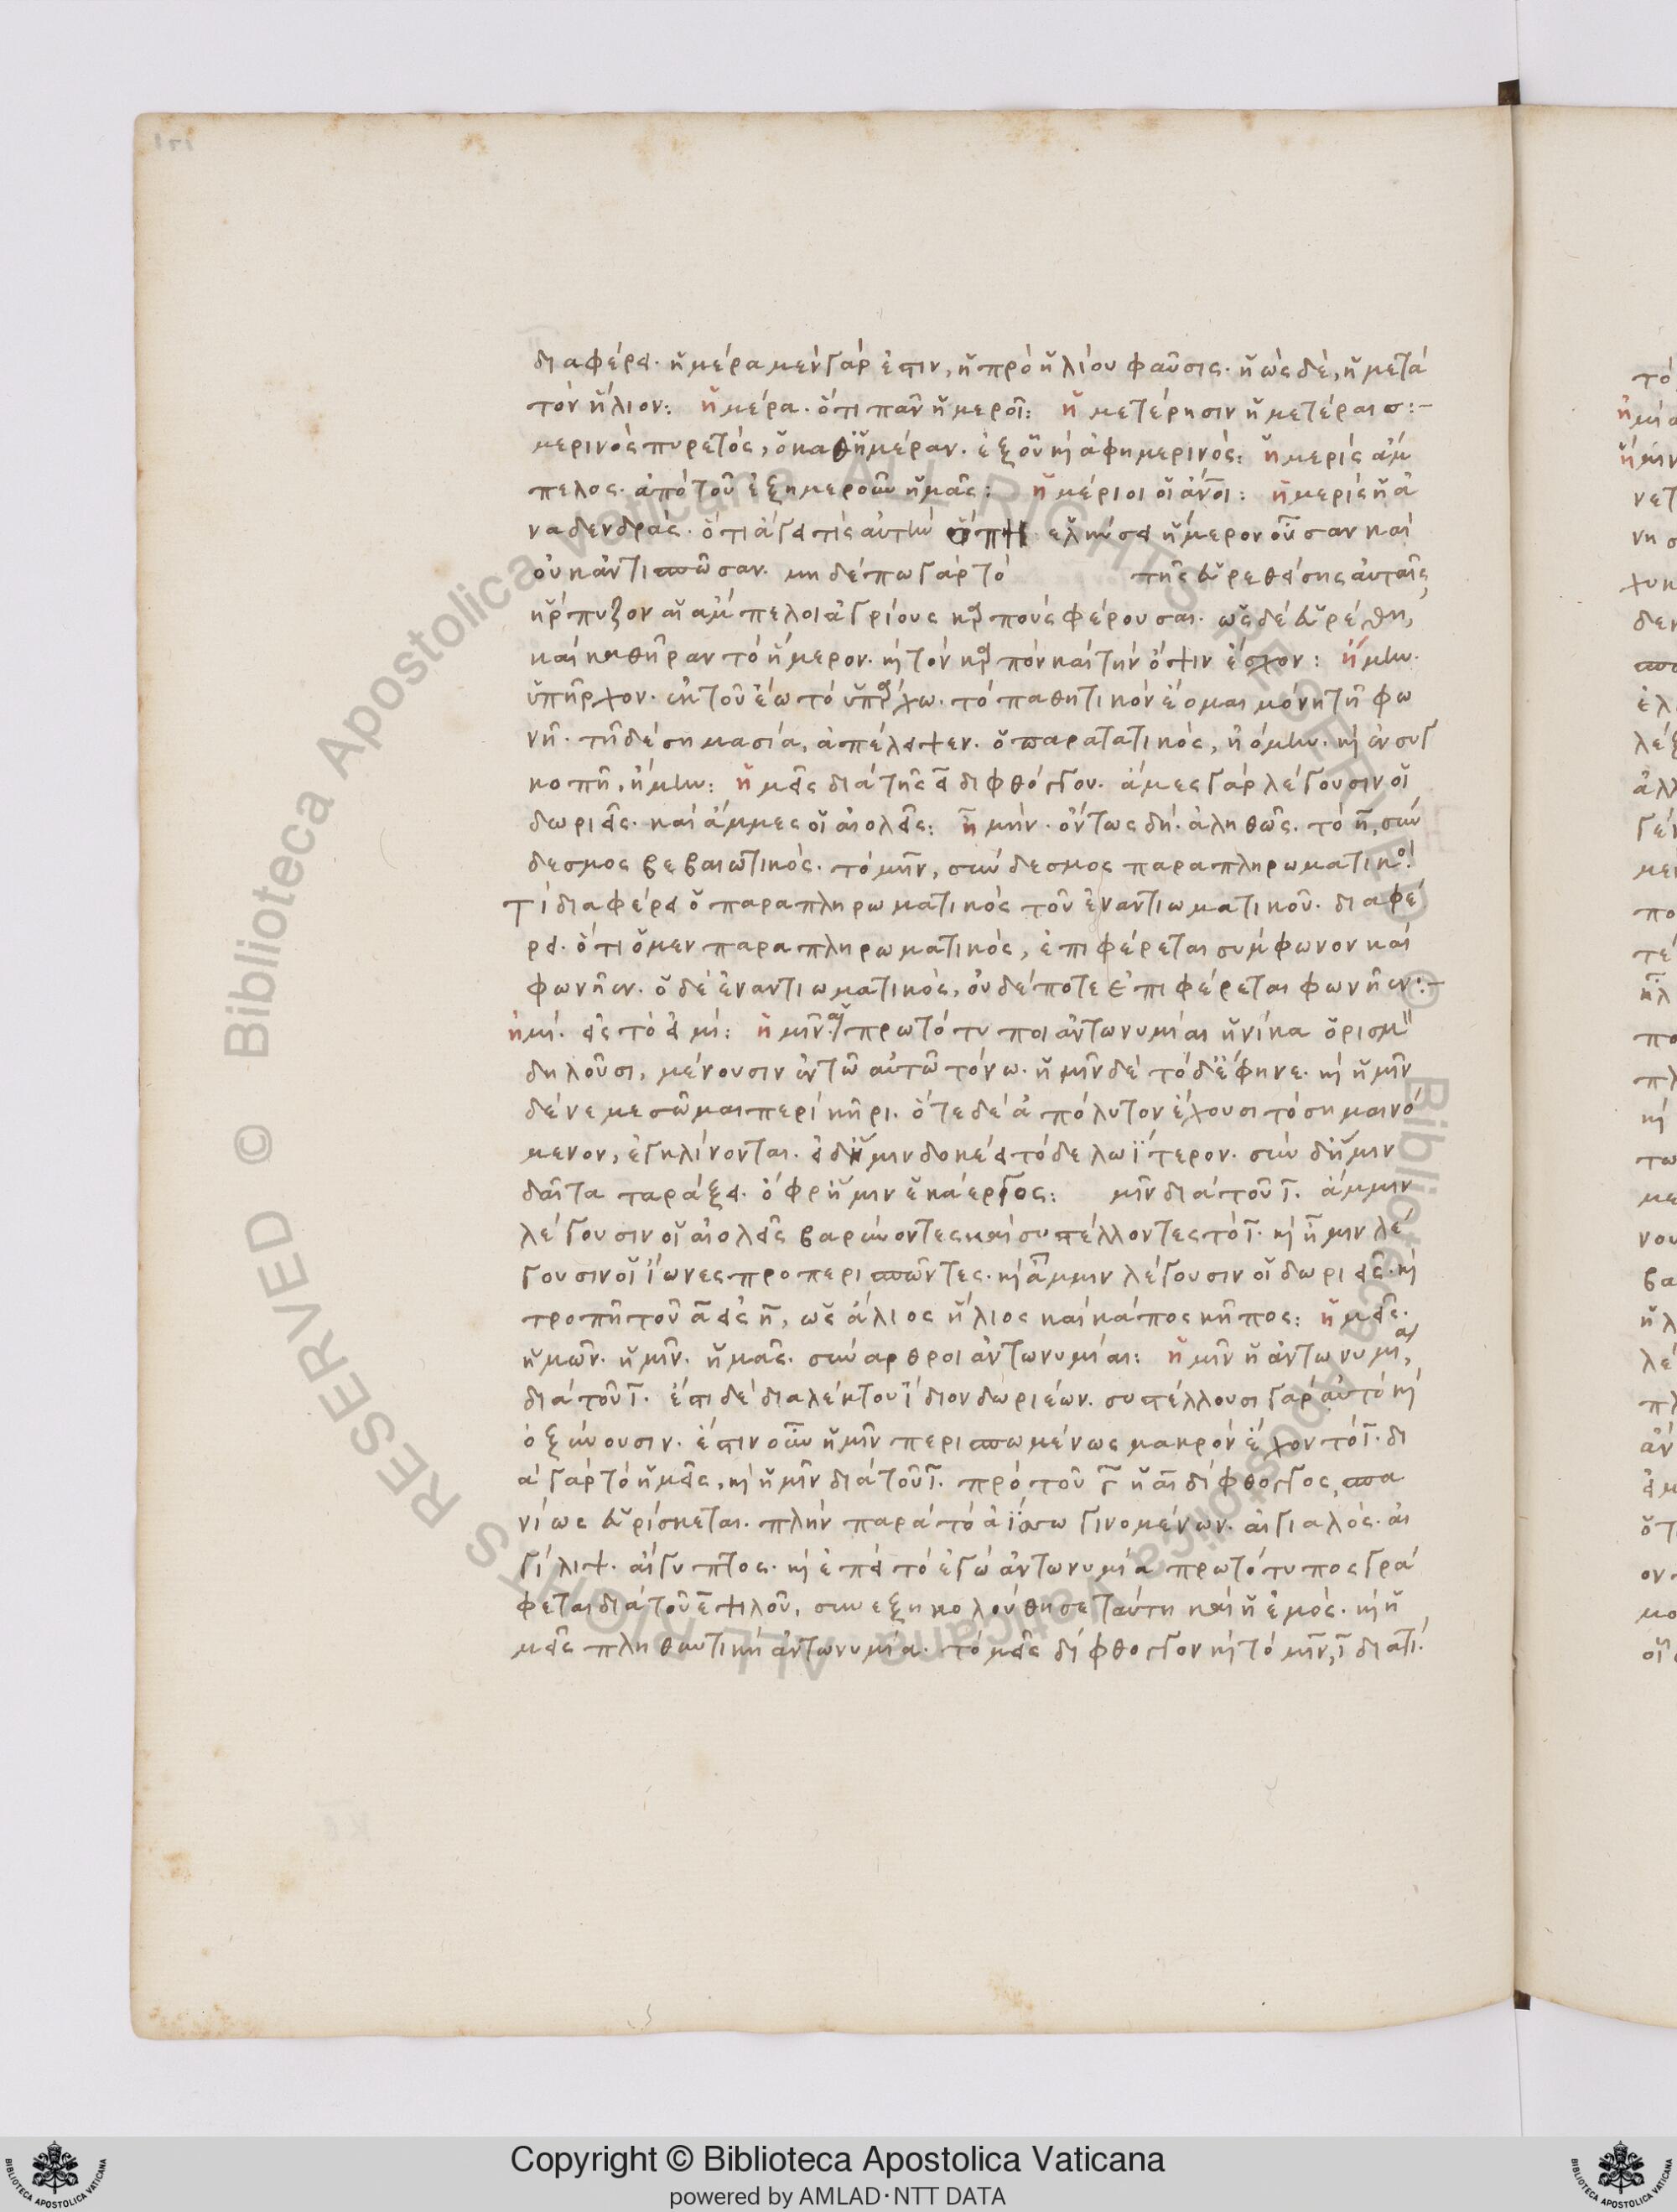 διαφέρει. ἡμέρα μὲν γάρ ἐστιν, ἡ πρὸ ἡλίου φαῦσις. ἡὼς δὲ, ἡ μετὰ
τὸν ἥλιον: ἡμέρα. ὅτι πᾶν ἡμεροῖ: ἡμετέρησιν ἡμετέραισ:–
μερινὸς πυρετός, ὁ καθ' ἡμέραν. ἐξ οὗ κ ἀφημερινός: ἡμερὶς ἄμ
πελος. ἀπὸ τοῦ ἐξημεροῦν ἡμᾶς: ἡμέριοι οἱ ἄνοι: ἡμερὶς ἡ ἀ
ναδενδράς. ὅτι ἄγει τις αὐτὴν εἰληύσει ἥμερον οὖσαν καὶ
οὐκ ἀντισπῶσαν. μηδέπω γὰρ τὸ τῆς εὑρεθείσης αὐταῖς
ἥρπυζον αἱ ἄμπελοι ἀγρίους καρποὺς φέρουσαι. ὡς δὲ εὑρέθη,
καὶ καθῆραν τὸ ἥμερον. κ τὸν καρπὸν καὶ τὴν ὄψιν ἔσχον: ἤμην.
ὑπῆρχον. ἐκ τοῦ ἔω τὸ ὑπάρχω. τὸ παθητικὸν ἔομαι μόνη τῇ φω
νῇ. τῇ δὲ σημασία, ἀπέλειψεν. ὁ παρατατικὸς, ἠόμην. κ ἐν συγ
κοπῇ, ἤμην: ἡμεῖς διὰ τῆς ει διφθόγγου. ἁμὲς γὰρ λέγουσιν οἱ
δωριεῖς. καὶ ἄμμες οἱ αἰολεῖς: ἦ μήν. ὄντως δή. ἀληθῶς. τὸ ἦ, σύν
δεσμος βεβαιωτικός. τὸ μῆν, σύνδεσμος παραπληρωματικός
Τί διαφέρει ὁ παραπληρωματικὸς τοῦ ἐναντιωματικοῦ. διαφέ
ρει. ὅτι ὁ μὲν παραπληρωματικὸς, ἐπιφέρεται σύμφωνον καὶ
φωνῆεν. ὁ δὲ ἐναντιωματικὸς, οὐδέποτε ἐπιφέρεται φωνῆεν:–
ἠμί. εἰς τὸ εἰμί: ἡμῖν. αἱ πρωτότυποι ἀντωνυμίαι ἡνίκα ὁρισμ
δηλοῦσι, μένουσιν ἐν τῶ αὐτῶ τόνω. ἡμῖν δὲ τόδ' ἔφηνε. κ ἡμῖν
δὲ νεμεσῶμαι περὶ κῆρι. ὅτε δὲ ἀπόλυτον ἔχουσι τὸ σημαινό
μενον, ἐγκλίνονται. εἰ δ' ἥμιν δοκέει τόδε λωΐτερον. σὺν δ' ἥμιν
δαῖτα ταράξει. ὄφρ' ἥμιν ἑκάεργος: μῖν διὰ τοῦ ι. ἄμμιν
λέγουσιν οἱ αἰολεῖς βαρύνοντες καὶ συστέλλοντες τὸ ι. κ ἧμιν λέ
γουσιν οἱ ἴωνες προπερισπῶντες. κ ἆμμιν λέγουσιν οἱ δωριεῖς. κ
τροπῇ τοῦ α εἰς η, ὡς ἅλιος ἥλιος καὶ κάπος κῆπος: ἡμεῖς.
ἡμῶν. ἡμῖν. ἡμᾶς. σύναρθροι ἀντωνυμίαι: ἡμῖν ἡ ἀντωνυμία,
διὰ τοῦ ι. ἔστι δὲ διαλέκτου ἴδιον δωριέων. συστέλλουσι γὰρ αὐτὸ κ
ὀξύνουσιν. ἔστιν οὖν ἡμῖν περισπωμένως μακρὸν ἔχον τὸ ι. δι
ὰ γὰρ τὸ ἡμεῖς, κ ἡμῖν διὰ τοῦ ι. πρὸ τοῦ γ ἡ αι δίφθογγος, σπα
νίως εὑρίσκεται. πλὴν παρὰ τὸ ἀΐσσω γινομένων. αἰγιαλός. αἰ
γίλιψ. αἴγυπτος. κ ἐπεὶ τὸ ἐγώ ἀντωνυμία πρωτότυπος γρά
φεται διὰ τοῦ ε ψιλοῦ, συνεξηκολούθησε ταύτη καὶ ἡ ἐμός. κ ἡ
μεῖς πληθυντικὴ ἀντωνυμία. τὸ μεῖς δίφθογγον κ τὸ μῖν, ι διατί.
Copyright © Biblioteca Apostolica Vaticana
powered by AMLAD·NTT DATA